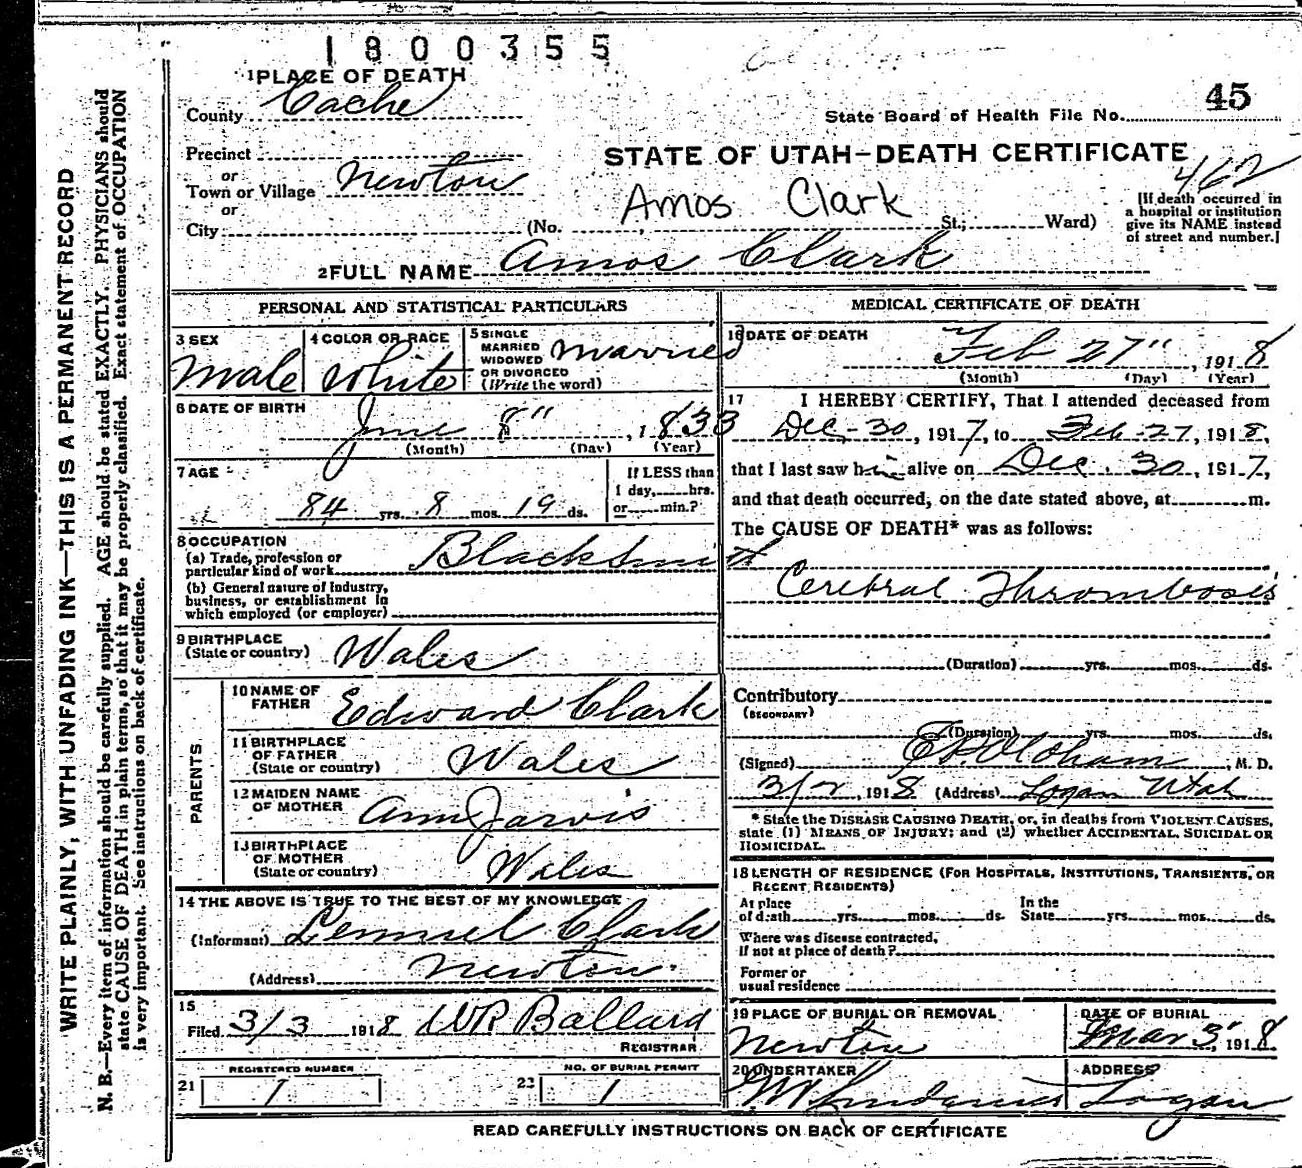 1800355
1 PLACE OF DEATH
County Cache
45
State Board of Health File No.
Precinct
or
Town or Village Newton
or
City
STATE OF UTAH—DEATH CERTIFICATE
462
Amos Clark
(No. St.; Ward)
[If death occurred in
a hospital or institution
give its NAME instead
of street and number.]
2 FULL NAME Amos Clark
PERSONAL AND STATISTICAL PARTICULARS
3 SEX
Male
4 COLOR OR RACE
White
5 SINGLE
MARRIED
WIDOWED
OR DIVORCED
(Write the word)
Married
6 DATE OF BIRTH
June 8", 1833
(Month) (Day) (Year)
7 AGE
84 yrs. 8 mos. 19 ds.
If LESS than
1 day,____hrs.
or____min.?
8 OCCUPATION
(a) Trade, profession or
particular kind of work Blacksmith
(b) General nature of industry,
business, or establishment in
which employed (or employer)
9 BIRTHPLACE
(State or country) Wales
PARENTS
10 NAME OF
FATHER Edward Clark
11 BIRTHPLACE
OF FATHER
(State or country) Wales
12 MAIDEN NAME
OF MOTHER Ann Jarvis
13 BIRTHPLACE
OF MOTHER
(State or country) Wales
14 THE ABOVE IS TRUE TO THE BEST OF MY KNOWLEDGE
(Informant) Lemuel Clark
(Address) Newton
15
Filed 3/3 1918 WR Ballard
REGISTRAR
21 REGISTERED NUMBER
1
22 NO. OF BURIAL PERMIT
1
MEDICAL CERTIFICATE OF DEATH
16 DATE OF DEATH
Feb 27", 1918
(Month) (Day) (Year)
17 I HEREBY CERTIFY, That I attended deceased from
Dec. 30, 1917, to Feb-27, 1918,
that I last saw him alive on Dec. 30, 1917,
and that death occurred, on the date stated above, at____m.
The CAUSE OF DEATH* was as follows:
Cerebral Thrombosis
(Duration) yrs. mos. ds.
Contributory
(SECONDARY)
(Duration) yrs. mos. ds.
(Signed) M. D.
3/2, 1918 (Address) Logan Utah
* State the DISEASE CAUSING DEATH, or, in deaths from VIOLENT CAUSES,
state (1) MEANS OF INJURY; and (2) whether ACCIDENTAL, SUICIDAL OR
HOMICIDAL.
18 LENGTH OF RESIDENCE (FOR HOSPITALS, INSTITUTIONS, TRANSIENTS, OR
RECENT RESIDENTS)
At place
of death yrs. mos. ds.
In the
State yrs. mos. ds.
Where was disease contracted,
If not at place of death?
Former or
usual residence
19 PLACE OF BURIAL OR REMOVAL
Newton
DATE OF BURIAL
Mar 3, 1918
20 UNDERTAKER
ADDRESS
Logan
READ CAREFULLY INSTRUCTIONS ON BACK OF CERTIFICATE
WRITE PLAINLY, WITH UNFADING INK—THIS IS A PERMANENT RECORD
N. B.—Every item of information should be carefully supplied. AGE should be stated EXACTLY. PHYSICIANS should
state CAUSE OF DEATH in plain terms, so that it may be properly classified. Exact statement of OCCUPATION
is very important. See instructions on back of certificate.